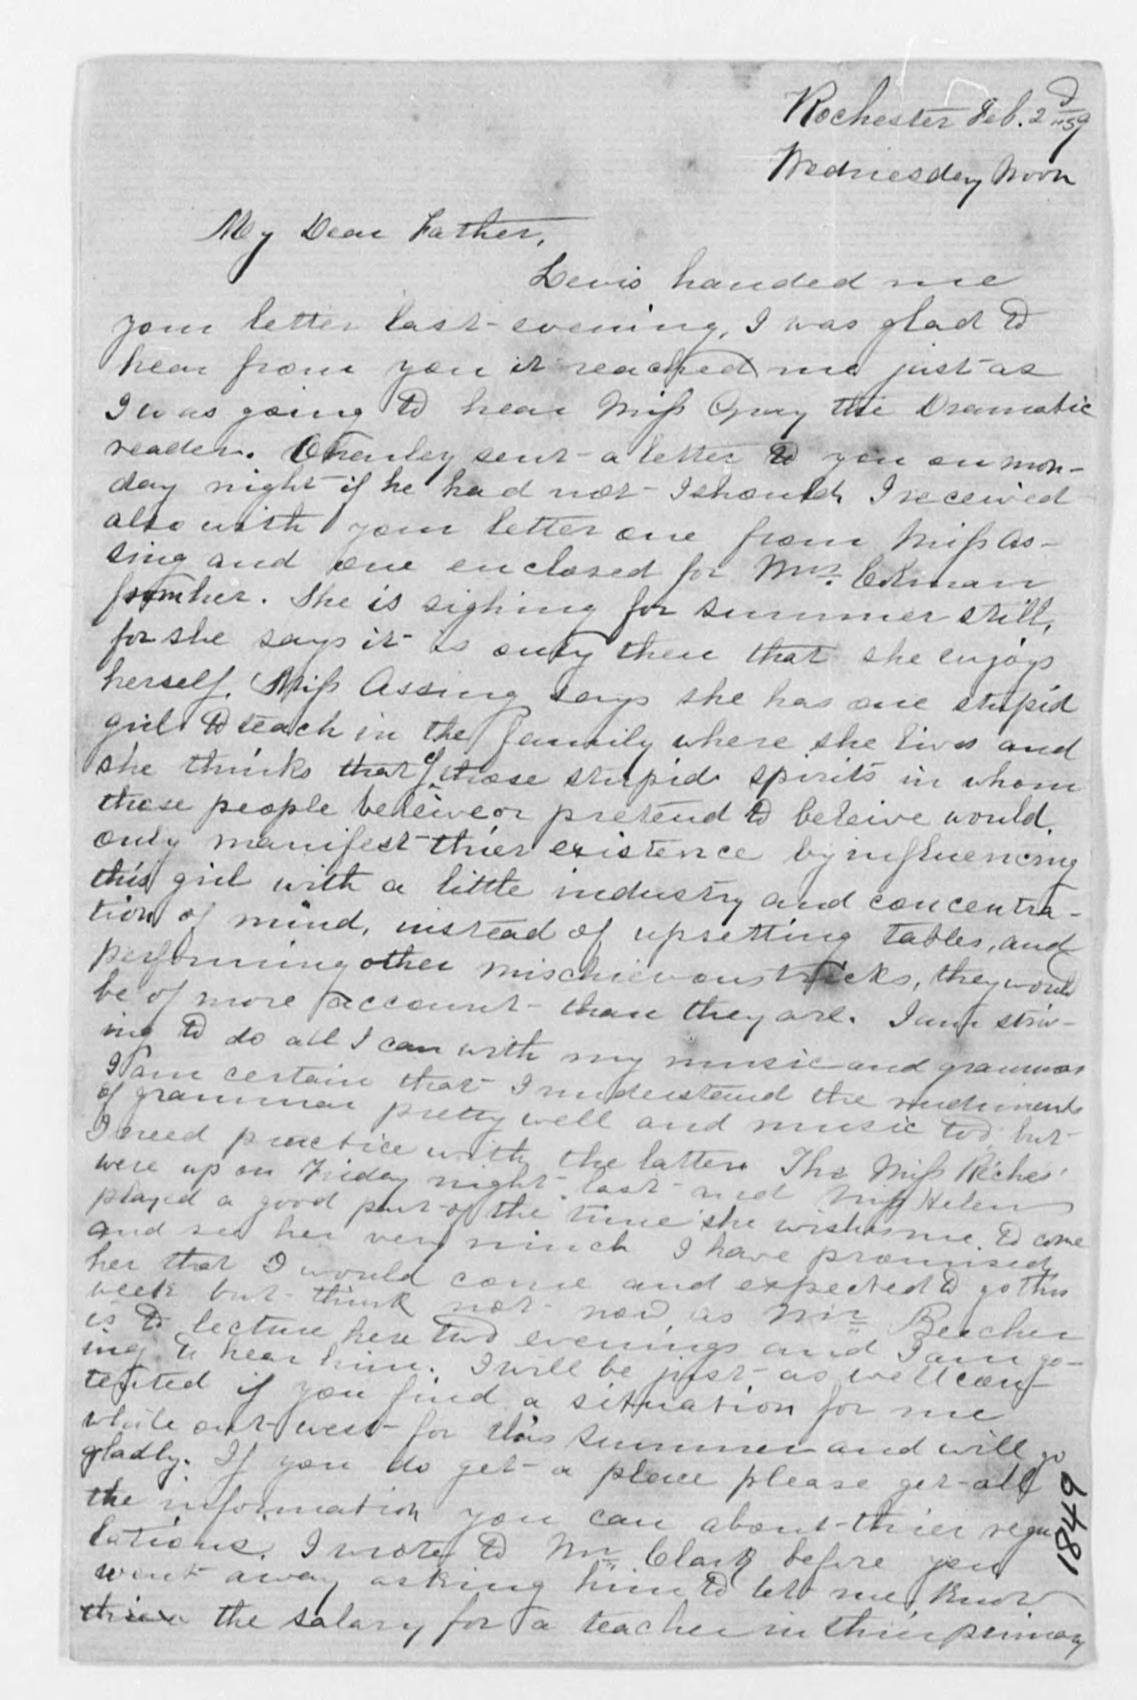 Rochester Feb. 2d /59
Wednesday Noon
My Dear Father,
Lewis handed me
your letter last evening, I was glad to
hear from you it reached me just as
I was going to hear Miss Gray the Dramatic
reader. Charley sent a letter to you on Mon-
day night if he had not I should, I received
also with your letter one from Miss As-
sing and one enclosed for Mrs. Colman
from her. She is sighing for summer still,
for she says it is only then that she enjoys
herself. Miss Assing says she has one stupid
girl to teach in the family where she lives and
she thinks that if those stupid spirits in whom
these people beleive or pretend to beleive would
only manifest thier existence by influencing
this girl with a little industry and concentra-
tion of mind, instead of upsetting tables, and
performing other mischievous tricks, they would
be of more account than they are. I am striv-
ing to do all I can with my music and grammar
I am certain that I understand the rudiments
of grammar pretty well and music too, but
I need practice with the latter. The Miss Riches'
were up on Friday night last and Miss Helen
played a good part of the time she wishes me to come
and see her very much I have promised
her that I would come and expected to go this
week but think not now as Mr. Beecher
is to lecture here two evenings and I am go-
ing to hear him. I will be just as well con-
tented if you find a situation for me
while out west for this summer and will go
gladly. If you do get a place please get all
the information you can about thier regu
lations. I wrote to Mr. Clark before you
went away asking him to let me know
the salary for a teacher in thier primary
1849